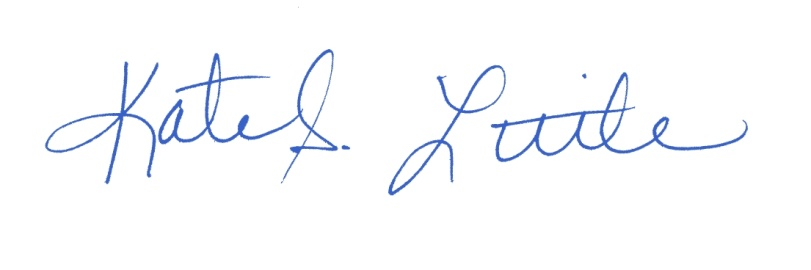 Kate S. Little